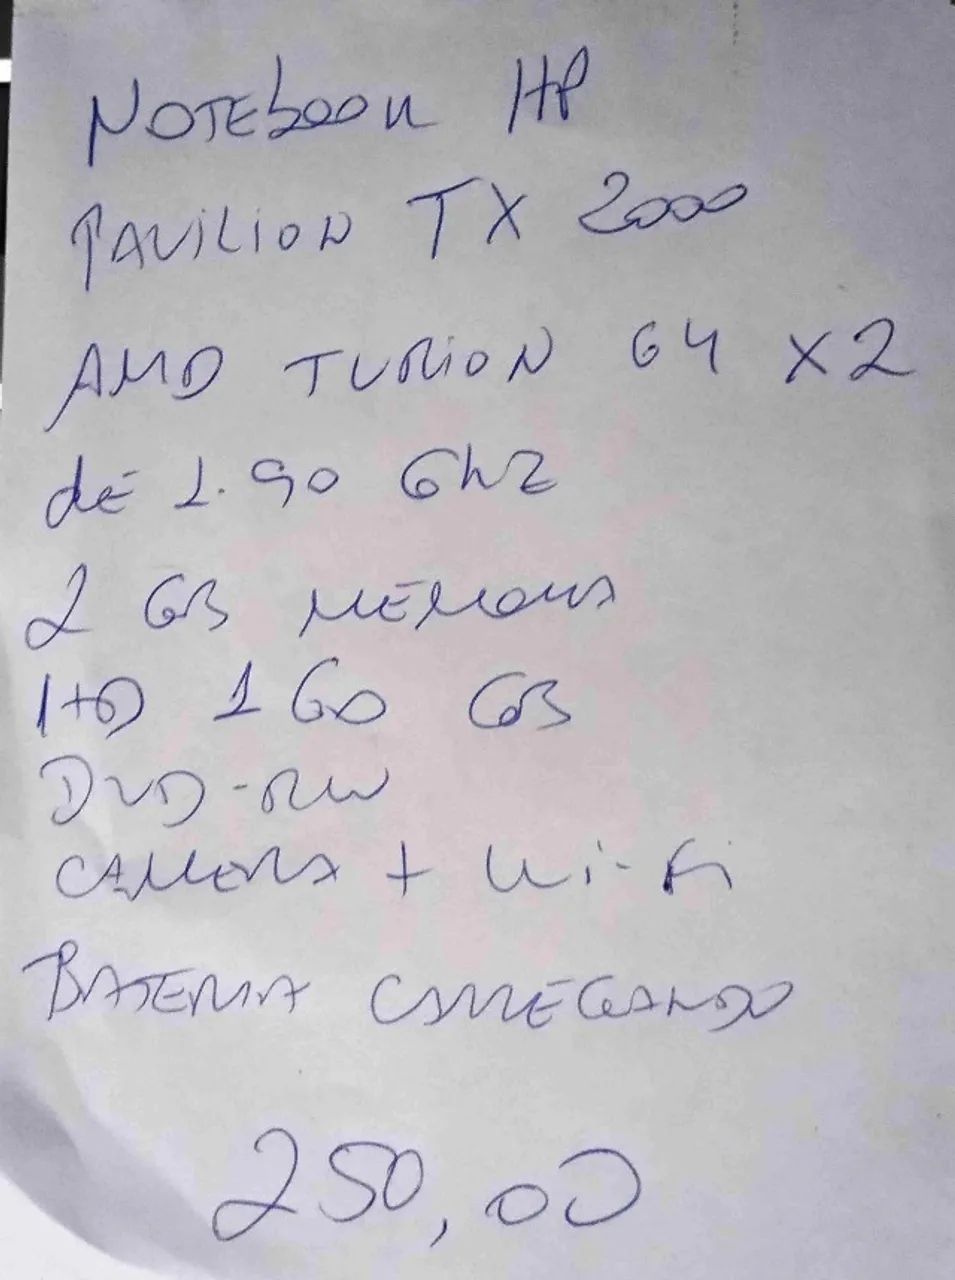 NOTEbook HP
PAViLION TX 2000
AMD TURiON 64 X2
dE 1.90 GhZ
2 GB MEMORIA
HD 160 GB
DVD-RW
CAMERA + Wi-Fi
BATERIA CARREGANDO
250,00